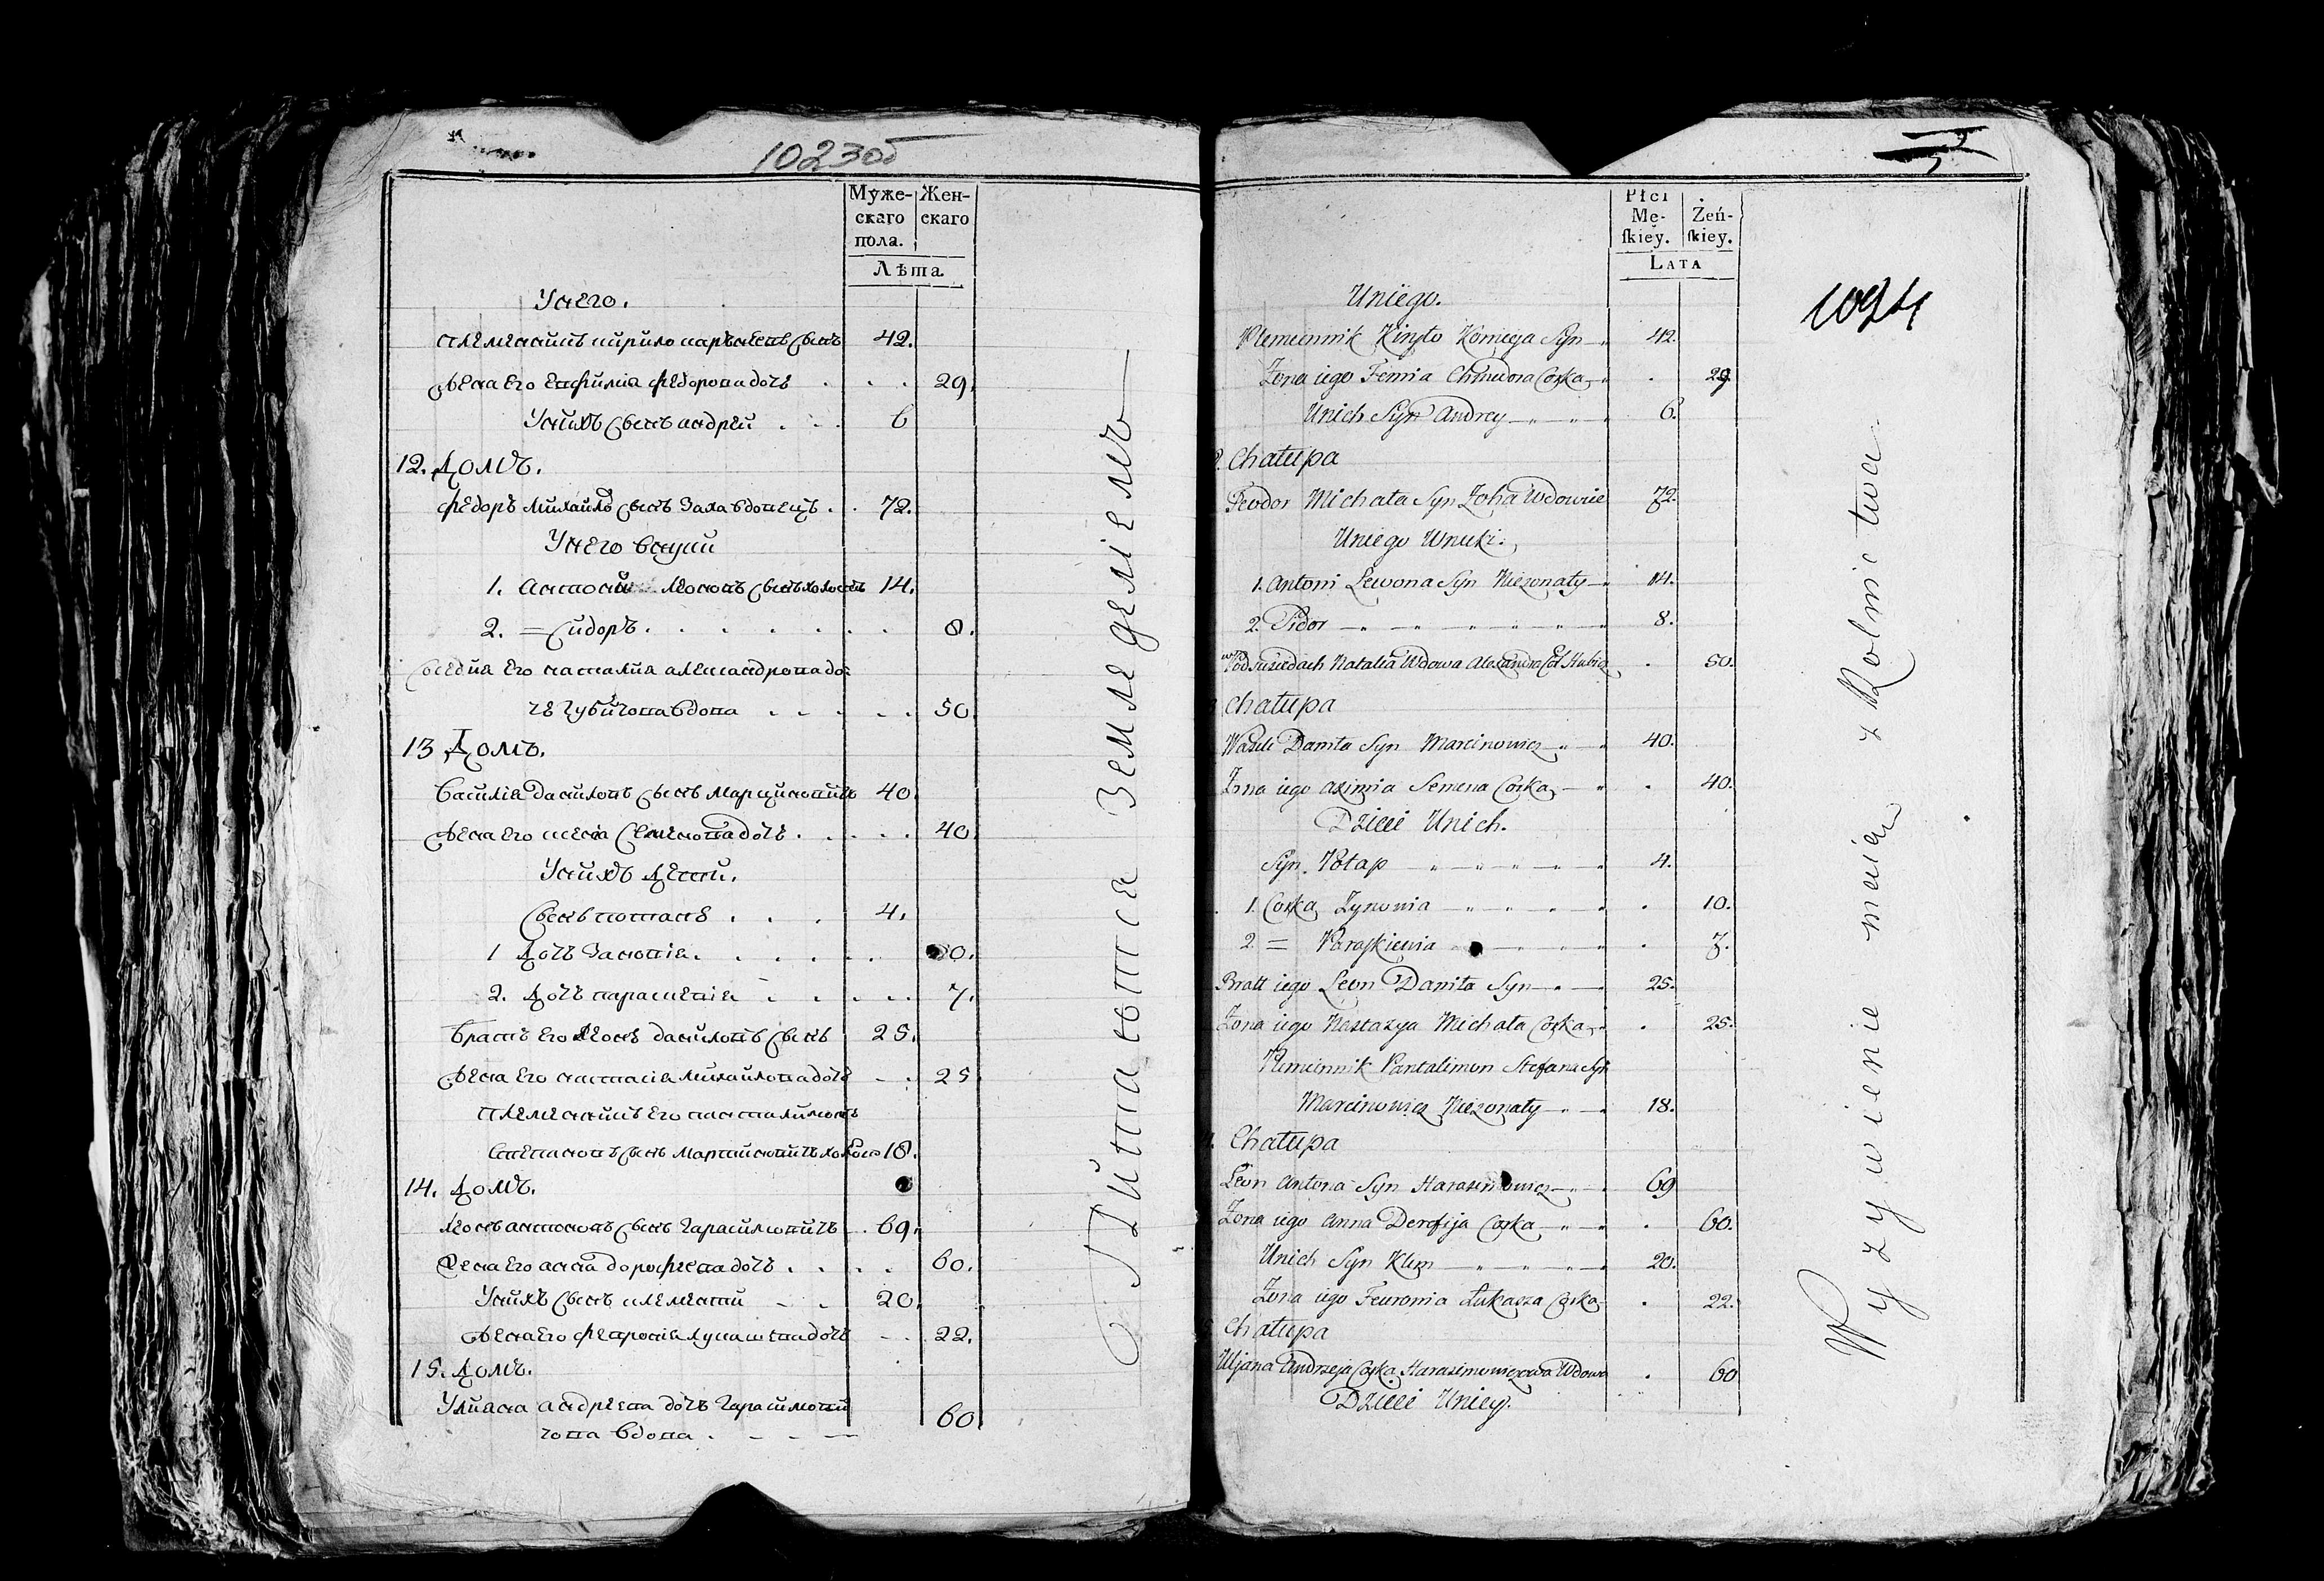 1023об
Муже- Жен-
скаго скаго
пола.
Лѣта
У него.
племенникъ кирило карнѣевъ сынъ 42.
жена его евфимiа федорова дочь 29.
У нихъ сынъ андрей 6
12. Домъ.
федоръ михайло сынъ Заха вдовецъ 72.
У него внуки
1. антонiй леоновъ сынъ холостъ 14.
2. = Сидоръ 8.
Суседка его наталия александрова до=
чь губичова вдова 50.
13 Домъ.
Василiа даниловъ сынъ марциновичъ 40.
жена его ксенiа Семенова дочь 40
У нихъ дети.
Сынъ потапъ 4.
1 дочь Зановiя 10.
2. дочь параскевiя 7.
братъ его леонъ даниловъ сынъ 25.
жена его настасiя михайлова дочь 25
племенникъ его панталимонъ
степановъ сынъ мартиновичъ холостъ 18.
14. Домъ.
леонъ антоновъ сынъ гарасимовичъ 69.
жена его анна дорофеева дочь 60.
У нихъ сынъ клементiй 20.
жена его феврониа лукашева дочь 22.
15. Домъ.
Улиана андреева дочь гарасимови
чова вдова 60
Питается Земледелiемъ
Płci
Mę- Żeń-
ſkiey. ſkiey.
LATA
1024
Uniego.
Plemiennik Kiryło Kornieja Syn 42.
Żona iego Femia Chwiedora Corka 29.
Unich Syn Andrey 6.
Chałupa
Feodor Michała Syn Zoha Wdowiec 72.
Uniego Wnuki.
1. Antoni Lewona Syn Nieżonaty 14.
2. Sidor 8.
w Podsusiedach Natalia Wdowa Alexandra Cor. Hubicz 50.
Chałupa
Wasili Daniła Syn Marcinowicz 40.
Żona iego Axinia Semena Corka 40.
Dzieci Unich.
Syn. Potap 4.
1. Corka Zynowia 10.
2. = Paraſkiewia 7.
Bratt iego Leon Daniła Syn 25.
Żona iego Nastazya Michała Corka 25.
Plemiennik Pantalimon Stefana Syn
Marcinowicz Nieżonaty 18.
Chałupa
Leon Antona Syn Harasimowicz 69
Żona iego Anna Derofija Corka 60.
Unich Syn Klim 20.
Żona iego Feuronia Łukasza Corka 22.
Chałupa
Uljana Andrzeja Corka Harasimowiczowa Wdowa 60
Dzieci Uniey.
Wyzywienie maią z Rolnictwa.